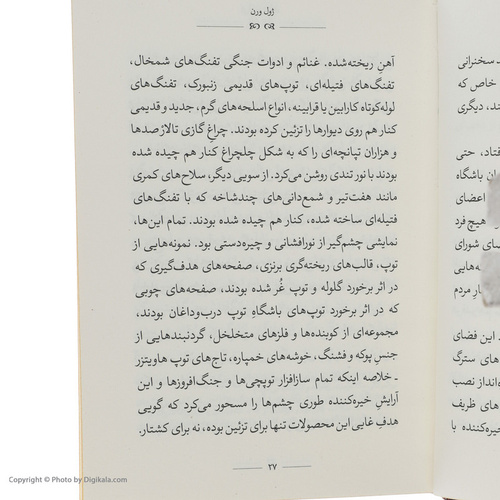 ژول ورن
آهنِ ریخته‌شده. غنائم و ادوات جنگی تفنگ‌های شمخال،
تفنگ‌های فتیله‌ای، توپ‌های قدیمی زنبورک، تفنگ‌های
لوله‌کوتاه کارابین یا قرابینه، انواع اسلحه‌های گرم، جدید و قدیمی
کنار هم روی دیوارها را تزئین کرده بودند. چراغ گازی تالار صدها
و هزاران تپانچه‌ای را که به شکل چلچراغ کنار هم چیده شده
بودند با نور تندی روشن می‌کرد. از سویی دیگر، سلاح‌های کمری
مانند هفت‌تیر و شمع‌دانی‌های چندشاخه که با تفنگ‌های
فتیله‌ای ساخته شده، کنار هم چیده شده بودند. تمام این‌ها،
نمایشی چشم‌گیر از نورافشانی و چیره‌دستی بود. نمونه‌هایی از
توپ، قالب‌های ریخته‌گری برنزی، صفحه‌های هدف‌گیری که
در اثر برخورد گلوله و توپ غُر شده بودند، صفحه‌های چوبی
که در اثر برخورد توپ‌های باشگاهِ توپ درب‌وداغان بودند،
مجموعه‌ای از کوبنده‌ها و فلزهای متخلخل، گردنبندهایی از
جنس پوکه و فشنگ، خوشه‌های خمپاره، تاج‌های توپ هاویتزر
ـ خلاصه اینکه تمام سازافزار توپچی‌ها و جنگ‌افروزها و این
آرایشِ خیره‌کننده طوری چشم‌ها را مسحور می‌کرد که گویی
هدفِ غایی این محصولات تنها برای تزئین بوده، نه برای کشتار.
۲۷
سخنرانی
خاص که
ند، دیگری
فتاد، حتی
باشگاه
اعضای
هیچ فرد
ضای شورای
ه‌هایی
مردم
این فضای
های سترگ
ه‌انداز نصب
های ظریف
خیره‌کننده با
Copyright © Photo by Digikala.com